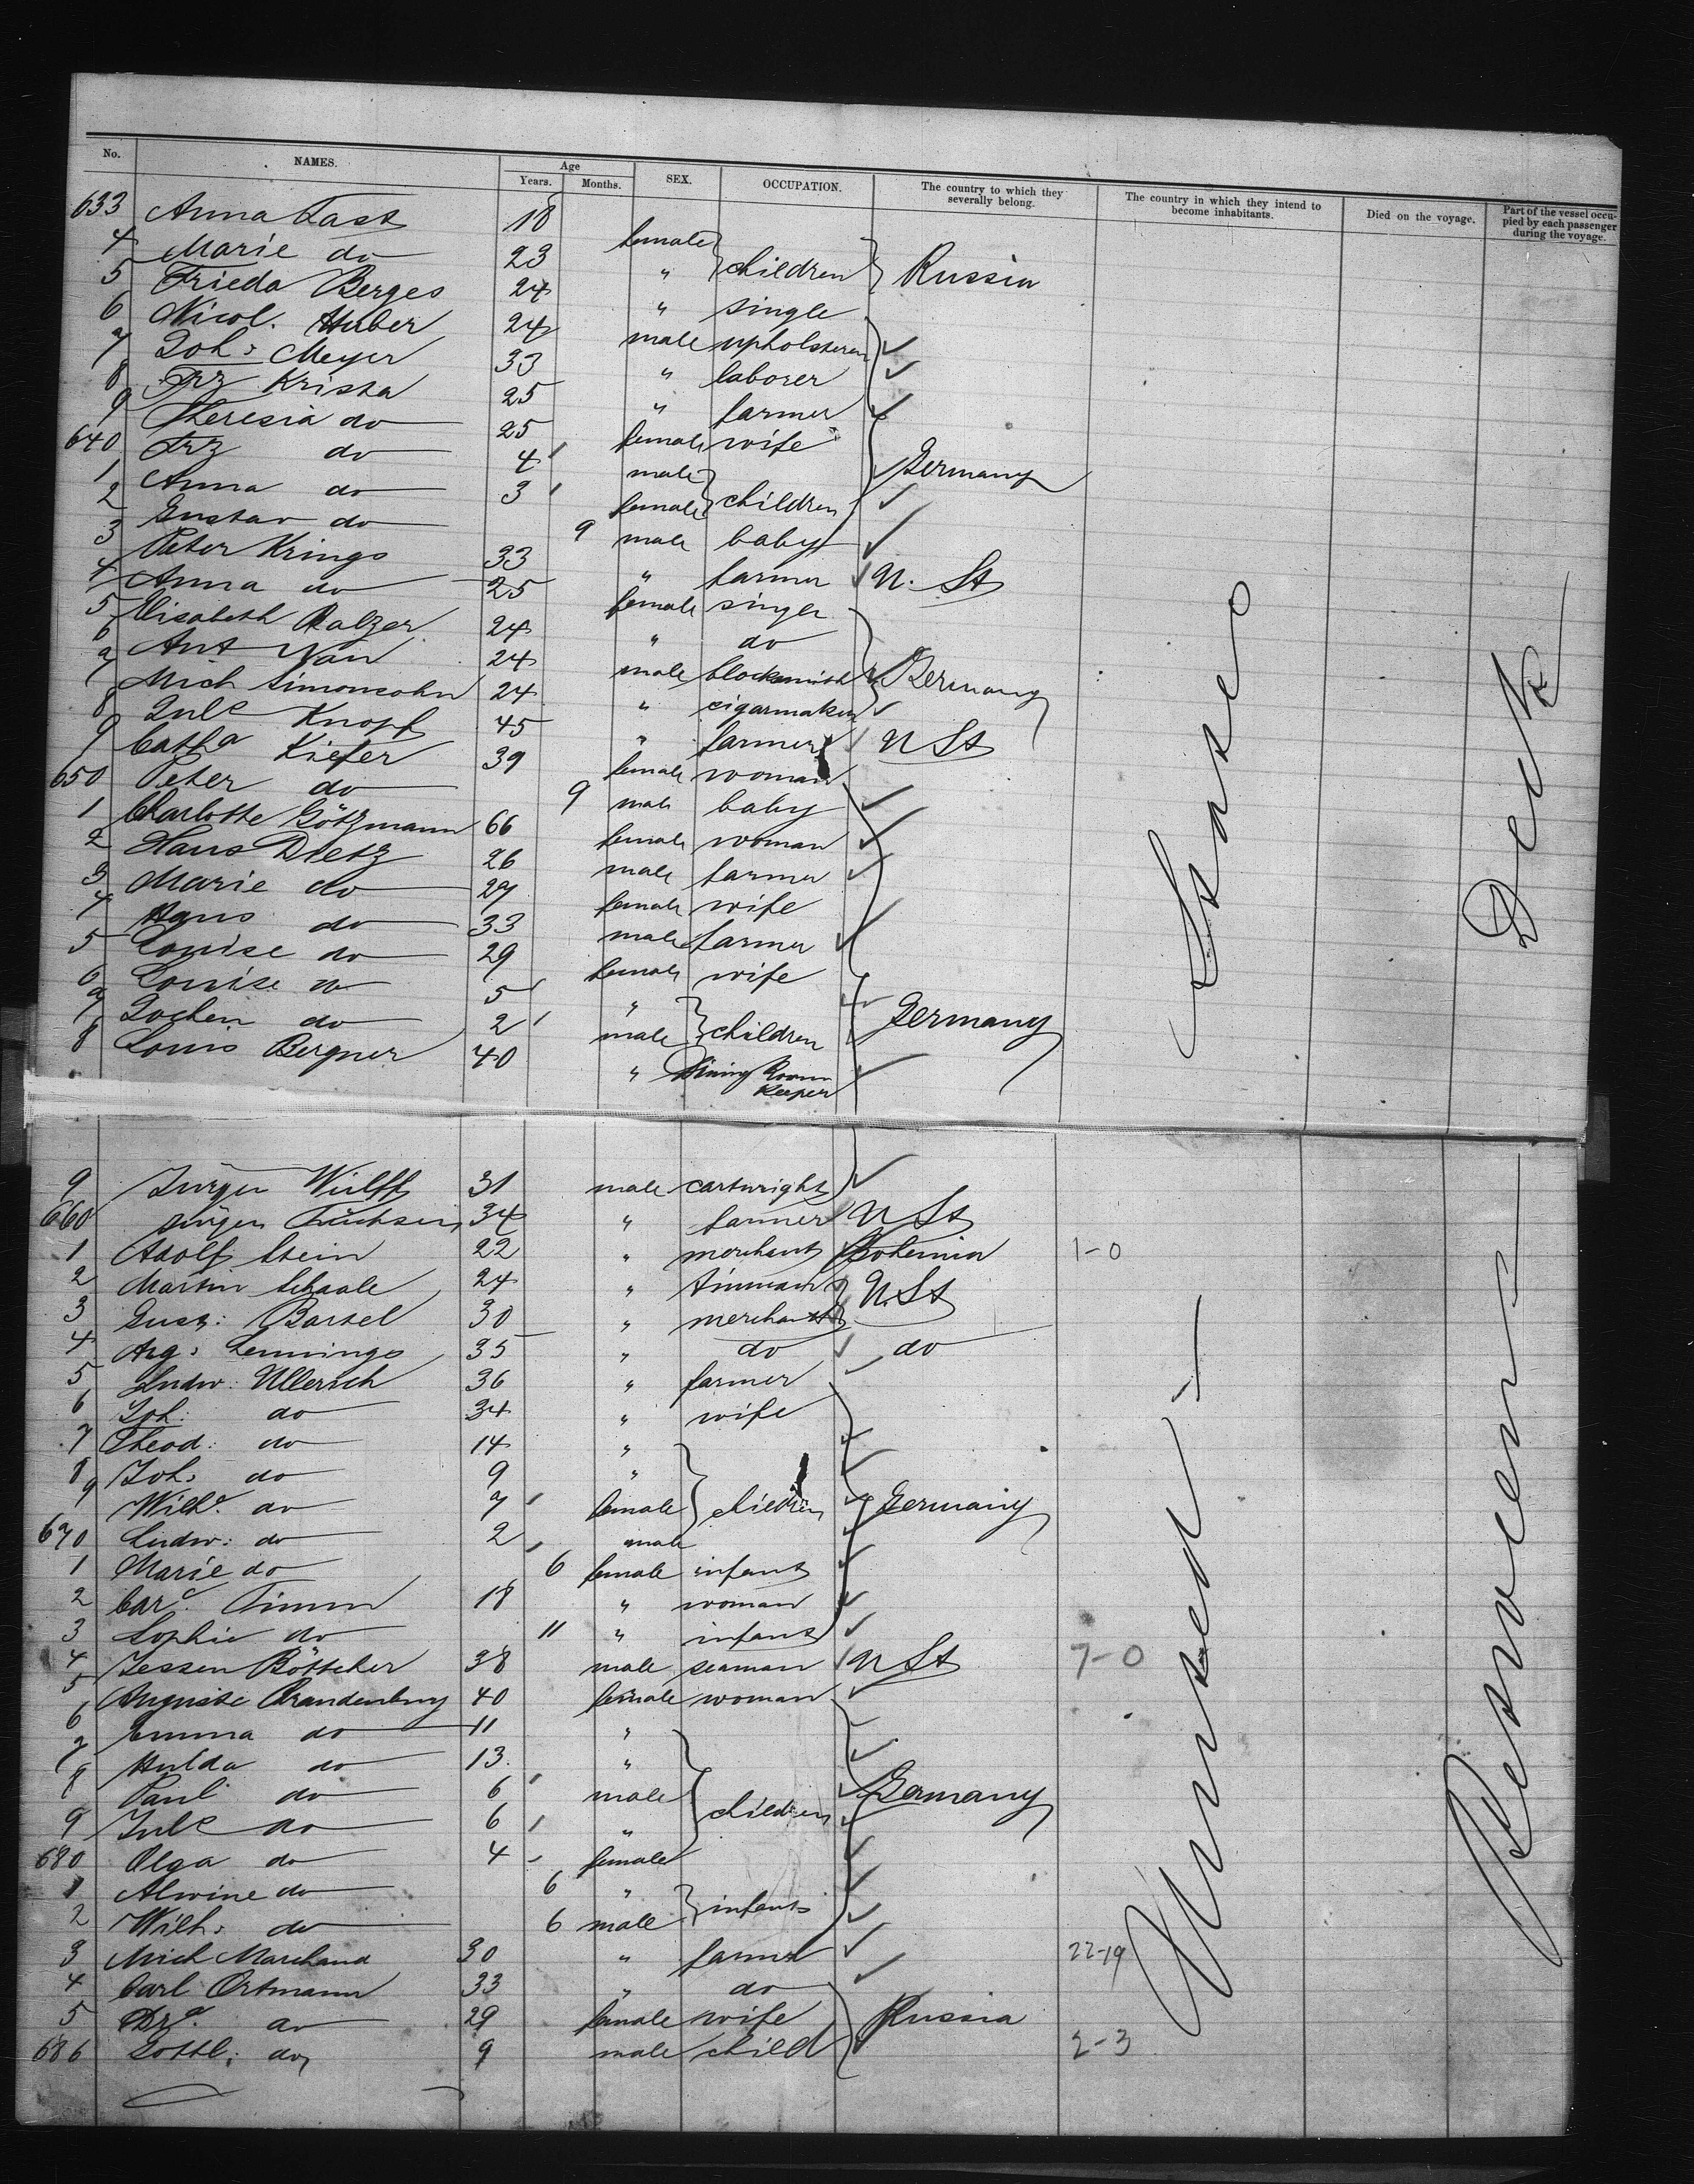 No. NAMES. Age Years. Months. SEX. OCCUPATION. The country to which they severally belong. The country in which they intend to become inhabitants. Died on the voyage. Part of the vessel occupied by each passenger during the voyage.
633 Anna Fast 18 female children Russia
4 Marie do 23 "
5 Frieda Berges 24 " single
6 Nicol. Huber 24 male upholsterer
7 Joh: Meyer 33 " laborer
8 Frz Krista 25 " farmer
9 Theresia do 25 female wife
640 Frz do 4 male children Germany
1 Anna do 3 female
2 Gustav do 9 male baby
3 Peter Krings 33 " farmer U. St
4 Anna do 25 female singer
5 Elisabeth Balzer 24 " do
6 Ant 24 male Germany
7 Mich Simonsohn 24 " cigarmaker
8 Jul Knopf 45 " farmer U St
9 Catha Kiefer 39 female woman
650 Peter do 9 male baby
1 Charlotte Götzmann 66 female woman
2 Hans Dietz 26 male farmer
3 Marie do 27 female wife
4 Hans do 33 male farmer
5 Louise do 29 female wife
6 Louise do 5 " children Germany
7 Jochen do 2 male
8 Louis Bergner 40 " Dining Room Keeper
9 Jürgen Wulff 31 male cartwright
660 Jürgen 34 " farmer U St
1 Adolf Stein 22 " merchant Bohemia 1-0
2 Martin Schaale 24 " U. St
3 Gust: Bartel 30 " merchant
4 Aug: Lennings 35 " do do
5 Ludw: Ullerich 36 " farmer
6 Joh: do 34 " wife
7 Theod: do 14 " children
8 Joh: do 9 "
9 Wilh. do 7 female Germany
670 Ludw: do 2 male
1 Marie do 6 female infant
2 Car. Timm 18 " woman
3 Sophie do 11 " infant
4 Jessen Böttcher 38 male seaman U St 7-0
5 Auguste Brandenburg 40 female woman
6 Emma do 11 "
7 Hulda do 13. "
8 Paul do 6 male children Germany
9 Jul do 6 "
680 Olga do 4 female
1 Alwine do 6 " infants
2 Wilh: do 6 male
3 Mich Marchand 30 " farmer 22-19
4 Carl Ortmann 33 " do
5 do 29 female wife Russia
686 Gottl: do 9 male child 2-3
United States
Deck